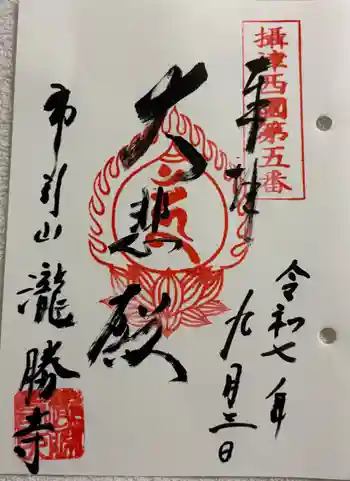 攝津西國第五番
奉拝
令和七年
九月三日
大悲殿
市引山
瀧勝寺